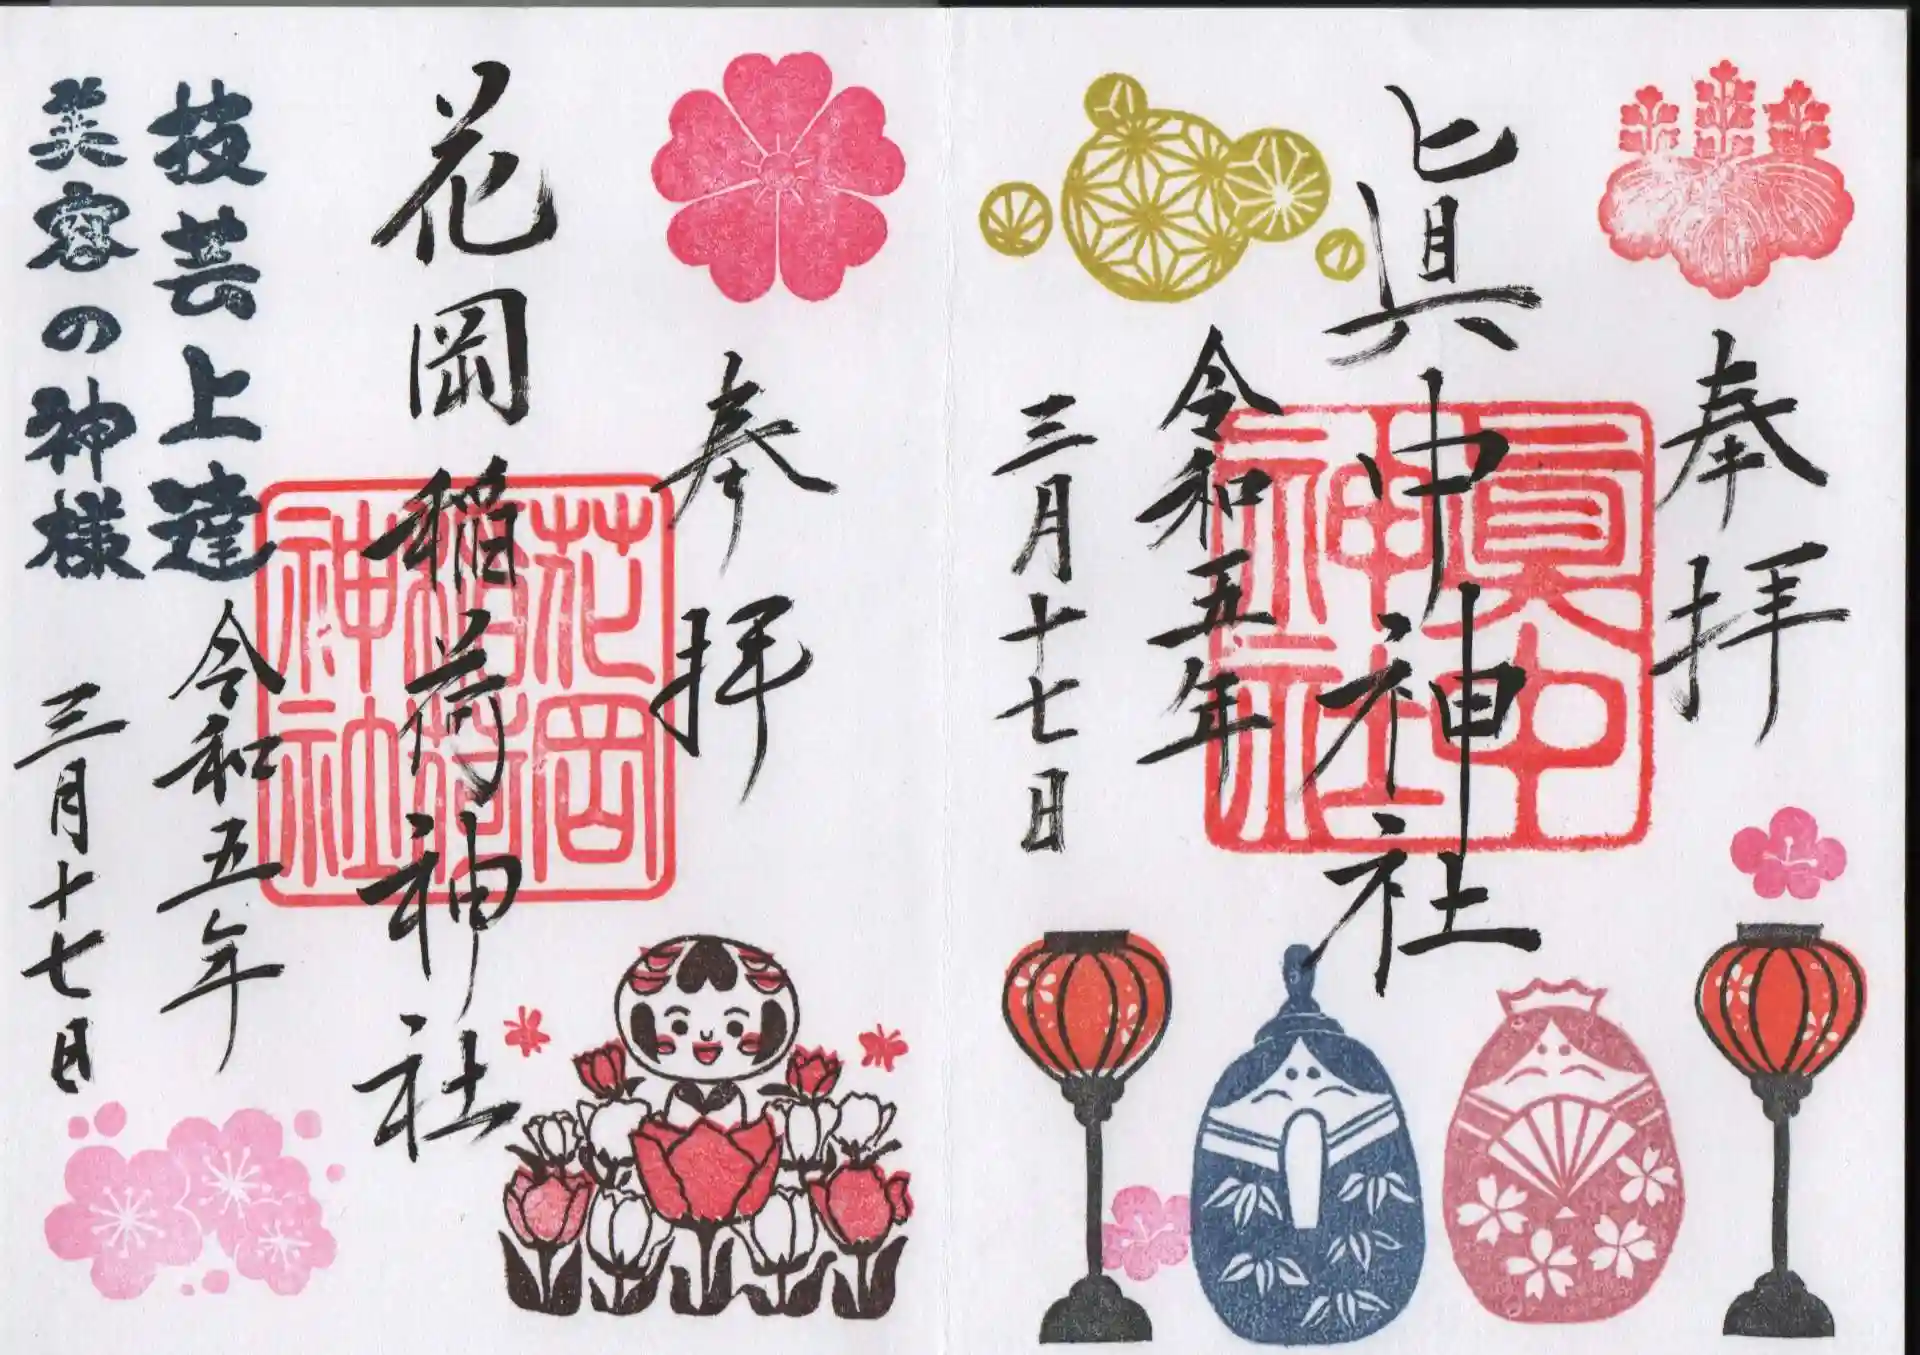 奉拝
眞中神社
眞中
神社
令和五年
三月十七日
奉拝
花岡稲荷神社
花岡
稲荷
神社
技芸上達
美容の神様
令和五年
三月十七日